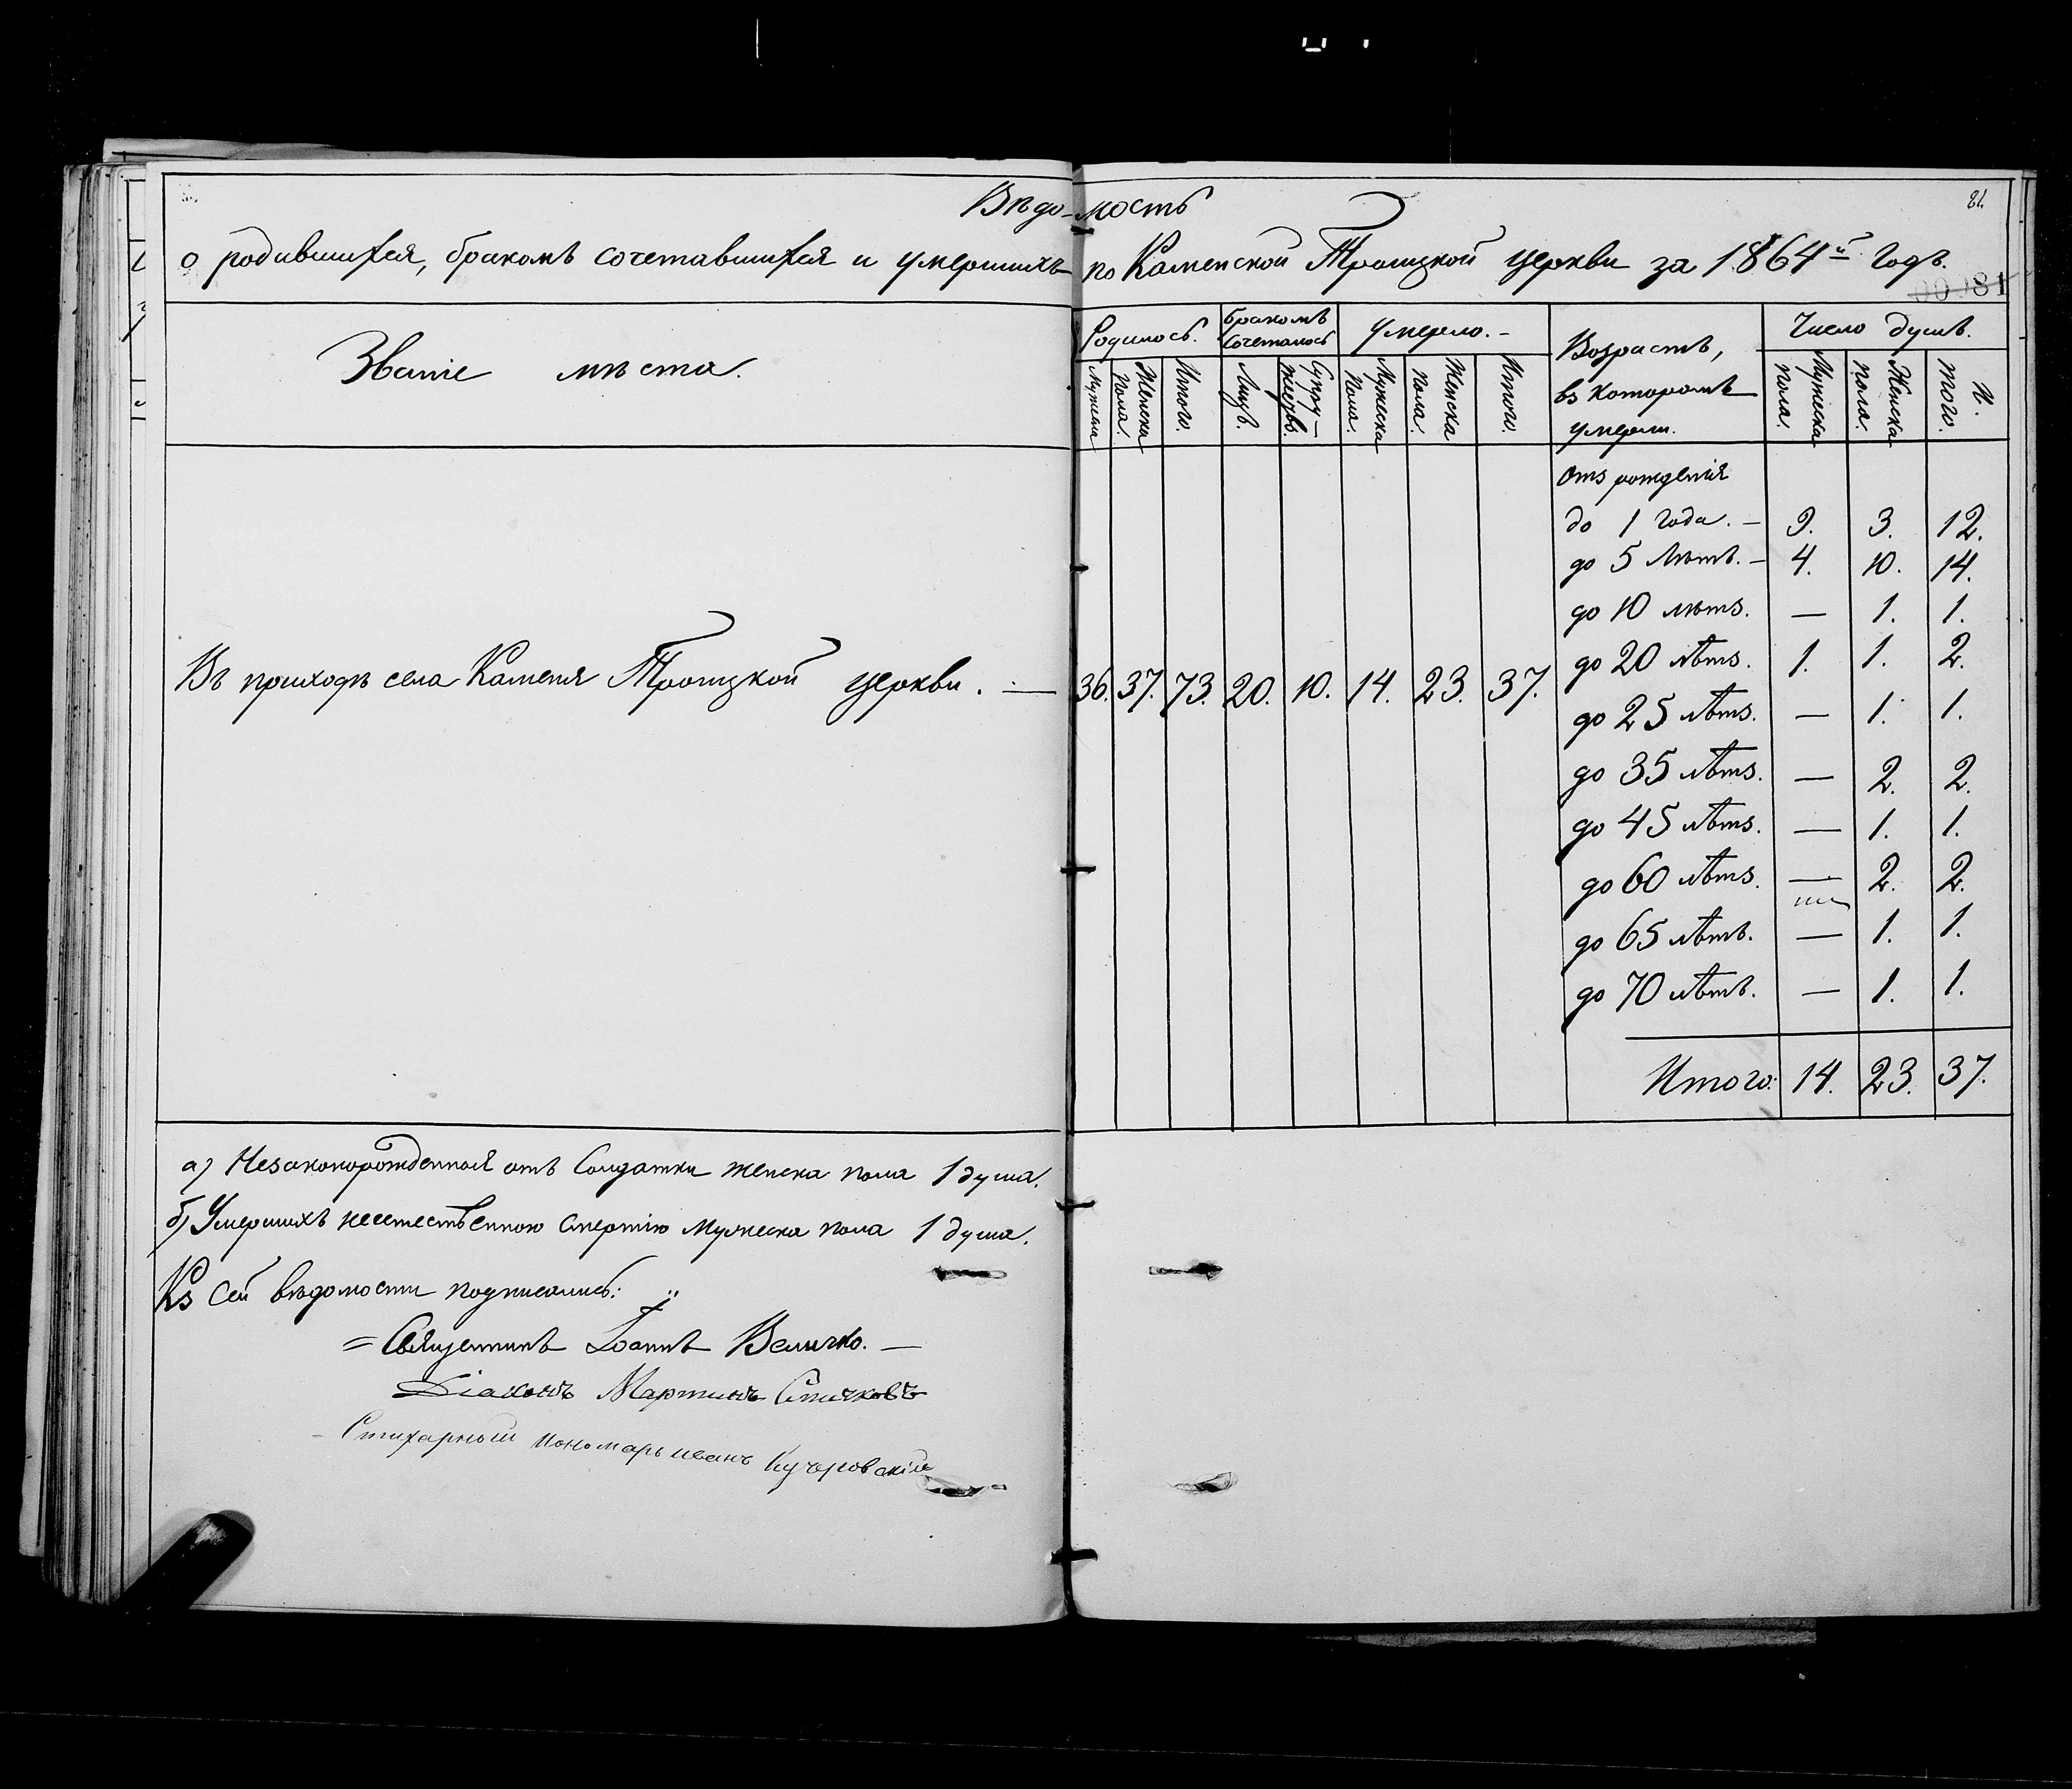 Вѣдомость
81.
о родившихся, бракомъ сочетавшихся и умершихъ по Каменской Троицкой церкви за 1864й годъ.
00081
Званіе мѣста.
Родилось.
бракомъ сочеталось
Умерло.
Возрастъ, въ которомъ умерли.
Число душъ.
Мужеска
Женска пола.
Итого.
Лицъ.
Супружествъ.
Мужеска пола.
Женска пола.
Итого.
Мужеска пола.
Женска пола.
Итого.
Отъ рожденія
до 1 года. — 9. 3. 12.
до 5 лѣтъ. — 4. 10. 14.
до 10 лѣтъ. — 1. 1.
Въ приходѣ села Каменя Троицкой церкви. — 36. 37. 73. 20. 10. 14. 23. 37.
до 20 лѣтъ. 1. 1. 2.
до 25 лѣтъ. — 1. 1.
до 35 лѣтъ. — 2. 2.
до 45 лѣтъ. — 1. 1.
до 60 лѣтъ. — 2. 2.
до 65 лѣтъ. — 1. 1.
до 70 лѣтъ. — 1. 1.
Итого: 14. 23. 37.
а) Незаконорожденная отъ Солдатки женска пола 1 душа.
б) Умершихъ неестественною смертію мужеска пола 1 душа.
Къ сей вѣдомости подписались:
Священникъ Іоаннъ Величко. —
Діаконъ Мартинъ Спичковъ
Стихарный пономарь Иванъ Кучеровскій